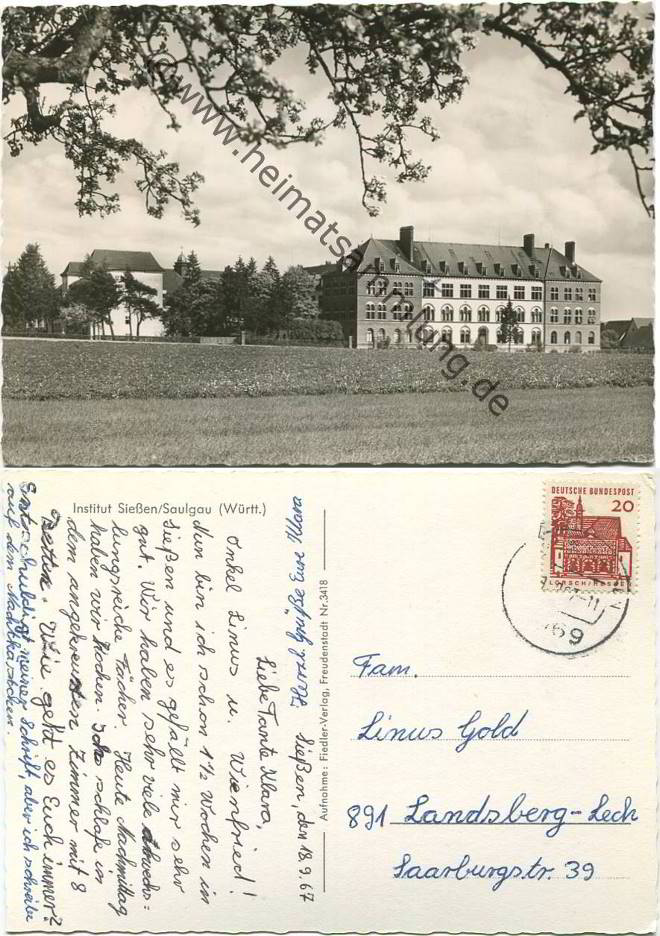 © www.heimatsammlung.de
Institut Sießen/Saulgau (Württ.)
Aufnahme: Fiedler-Verlag, Freudenstadt Nr. 3418
DEUTSCHE BUNDESPOST
20
LORSCH/HESSEN
Sießen, den 18.9.67
Liebe Tante Klara,
Onkel Linus u. Wienfried!
Nun bin ich schon 1 1/2 Wochen in
Sießen und es gefällt mir sehr
gut. Wir haben sehr viele abwechs=
lungsreiche Fächer. Heute Nachmittag
haben wir Kochen. Ich schlafe in
dem angekreuzten Zimmer mit 8
Betten. Wie geht es Euch immer?
Entschuldigt meiner Schrift, aber ich schreibe
auf dem Nachtkästchen.
Herzl. Grüße eure Maria
Fam.
Linus Gold
891 Landsberg-Lech
Saarburgstr. 39